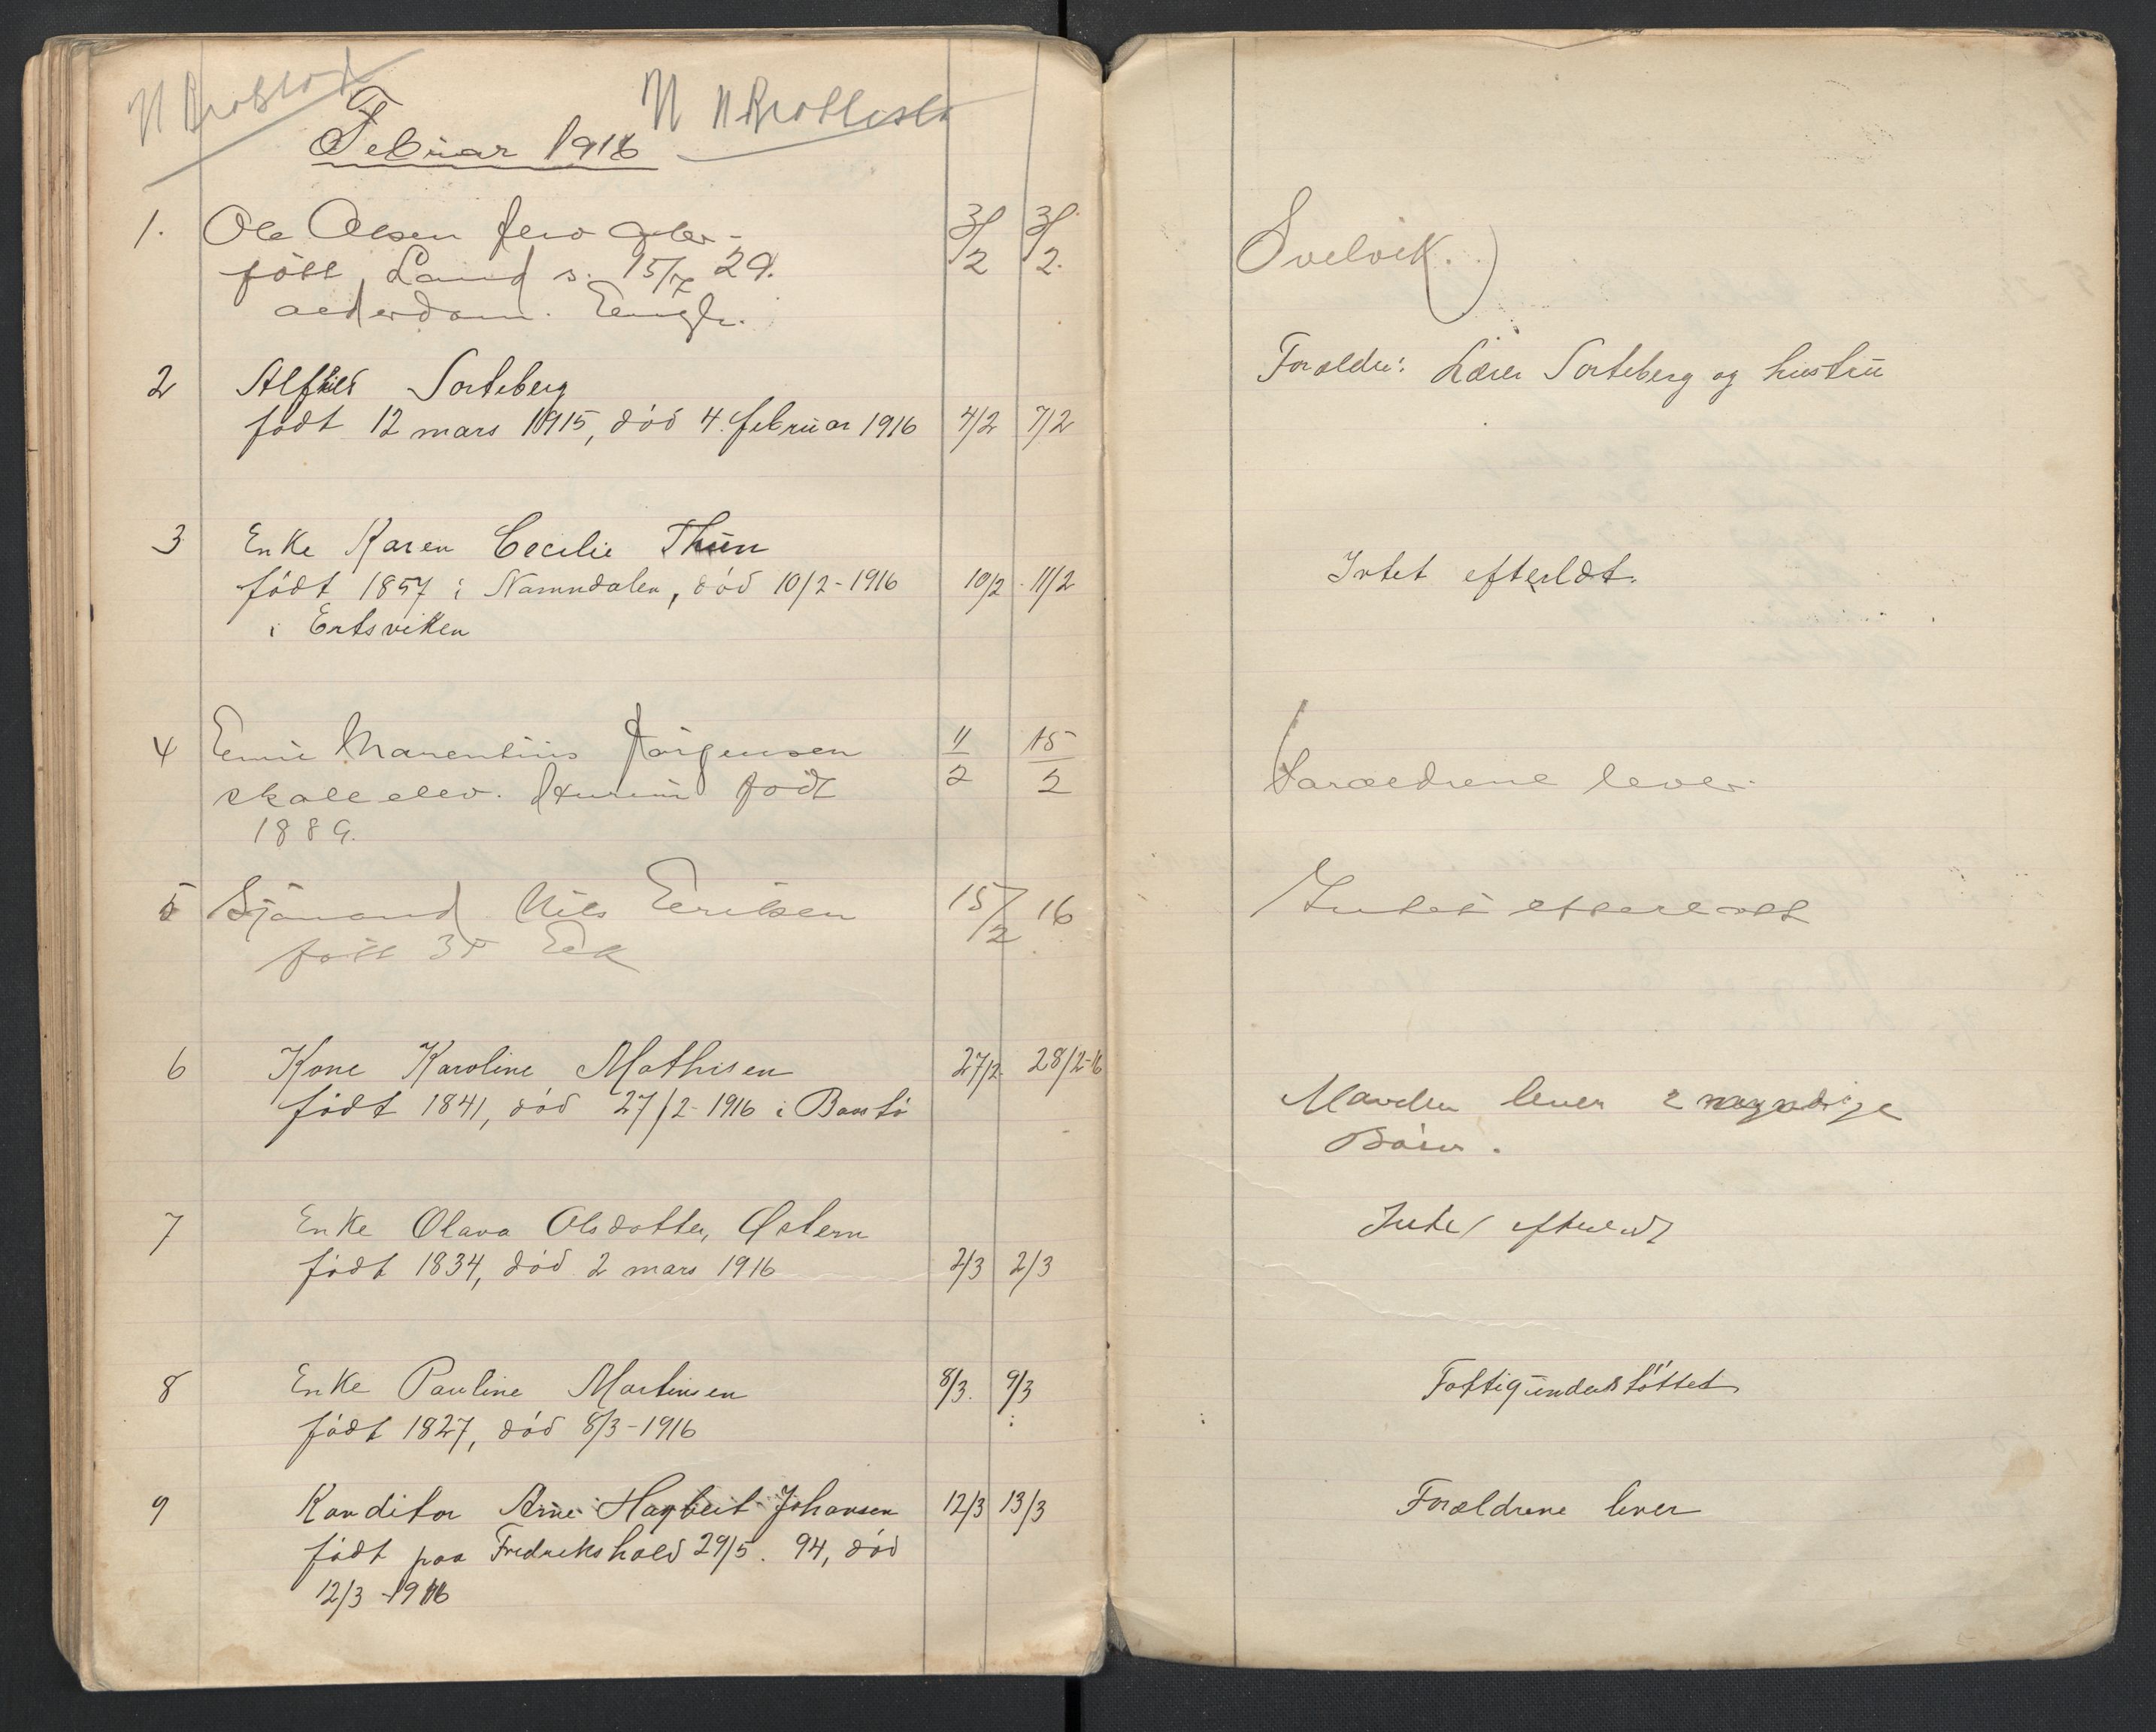 Februar 1916
1. Ole Olsen 3/2 3/2.
född Land s. 15/7 29.
alderdom.
Svelvik.
2 Alfhild Sorteberg
Forældre: Lærer Sorteberg og hustru
født 12 mars 1915, död 4. februar 1916 4/2 7/2
3 Enke Karen Cecilie Thun
født 1857 i Namndalen, död 10/2-1916 10/2 11/2
Intet efterladt.
i Ertsviken
4 Marentius Jörgensen 11/2 15/2
elev. född
Forældrene lever
1889.
5 Sjömand Nils Eriksen 15/2 16
Intet efterladt
född 35 Eek
6 Kone Karoline Mathisen 27/2 28/2-16
født 1841, död 27/2-1916 i Bastö
Manden lever 2 myndige
Börn.
7 Enke Olava Olsdatter, Østern
Intet efterladt
født 1834, död 2 mars 1916 2/3 2/3
8 Enke Pauline Martinsen 8/3. 9/3
Fattigunderstöttet
født 1827, död 8/3-1916
9 Konditor Arne Hagbert Johansen 12/3 13/3
Forældrene lever
født paa Fredrikshald 29/5. 94, död
12/3-1916